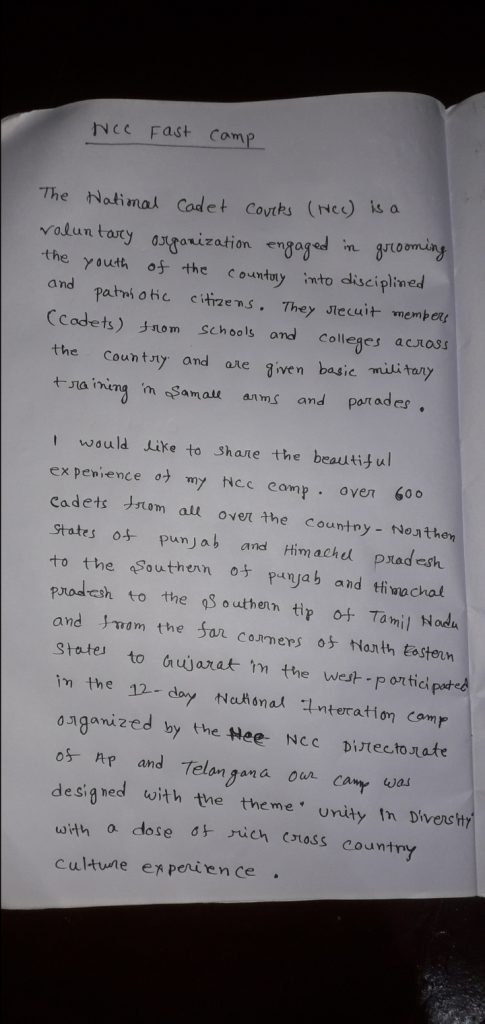 NCC Fast Camp
The National Cadet Courks (NCC) is a
voluntary organization engaged in grooming
the youth of the country into disciplined
and patriotic citizens. They recuit members
(cadets) from schools and colleges across
the country and are given basic military
training in Samall arms and parades.
I would like to share the beautiful
experience of my NCC camp. over 600
cadets from all over the country - Northen
States of punjab and Himachel pradesh
to the Southern of punjab and Himachal
pradesh to the Southern tip of Tamil Nadu
and from the far corners of North Eastern
States to Gujarat in the west - participated
in the 12-day National Interation camp
organized by the NCC Directorate
of Ap and Telangana our camp was
designed with the theme "unity In Diversity"
with a dose of rich cross country
culture experience.